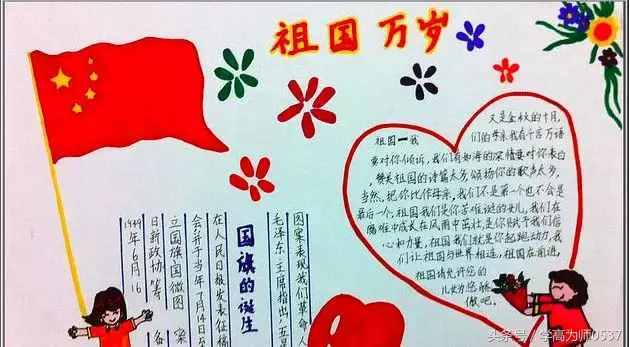 祖国万岁
又是金秋的十月,
祖国一我们的母亲,我有千言万语
要对你倾诉,我们有如海的深情要对你表白
,赞美祖国的诗篇太多,倾扬你的歌声太多,
当然,把你比作母亲,我们不是第一个也不会是
最后一个,祖国我们是你苦难谜的女儿,我们在
磨难中成长在风雨中茁壮,是你赋予我们信
心和力量,祖国我们就是你起跑动力,我
们让祖国与世界相连,祖国在前进,
祖国请允许您的
儿女为您骄
傲吧。
1949年6月16
日新政协筹备
立国旗国徽图案
会并于当年7月14日至
在人民日报发表征稿
国旗的诞生
毛泽东主席指出:五星
图案表现我们革命人
头条号/学高为师0537